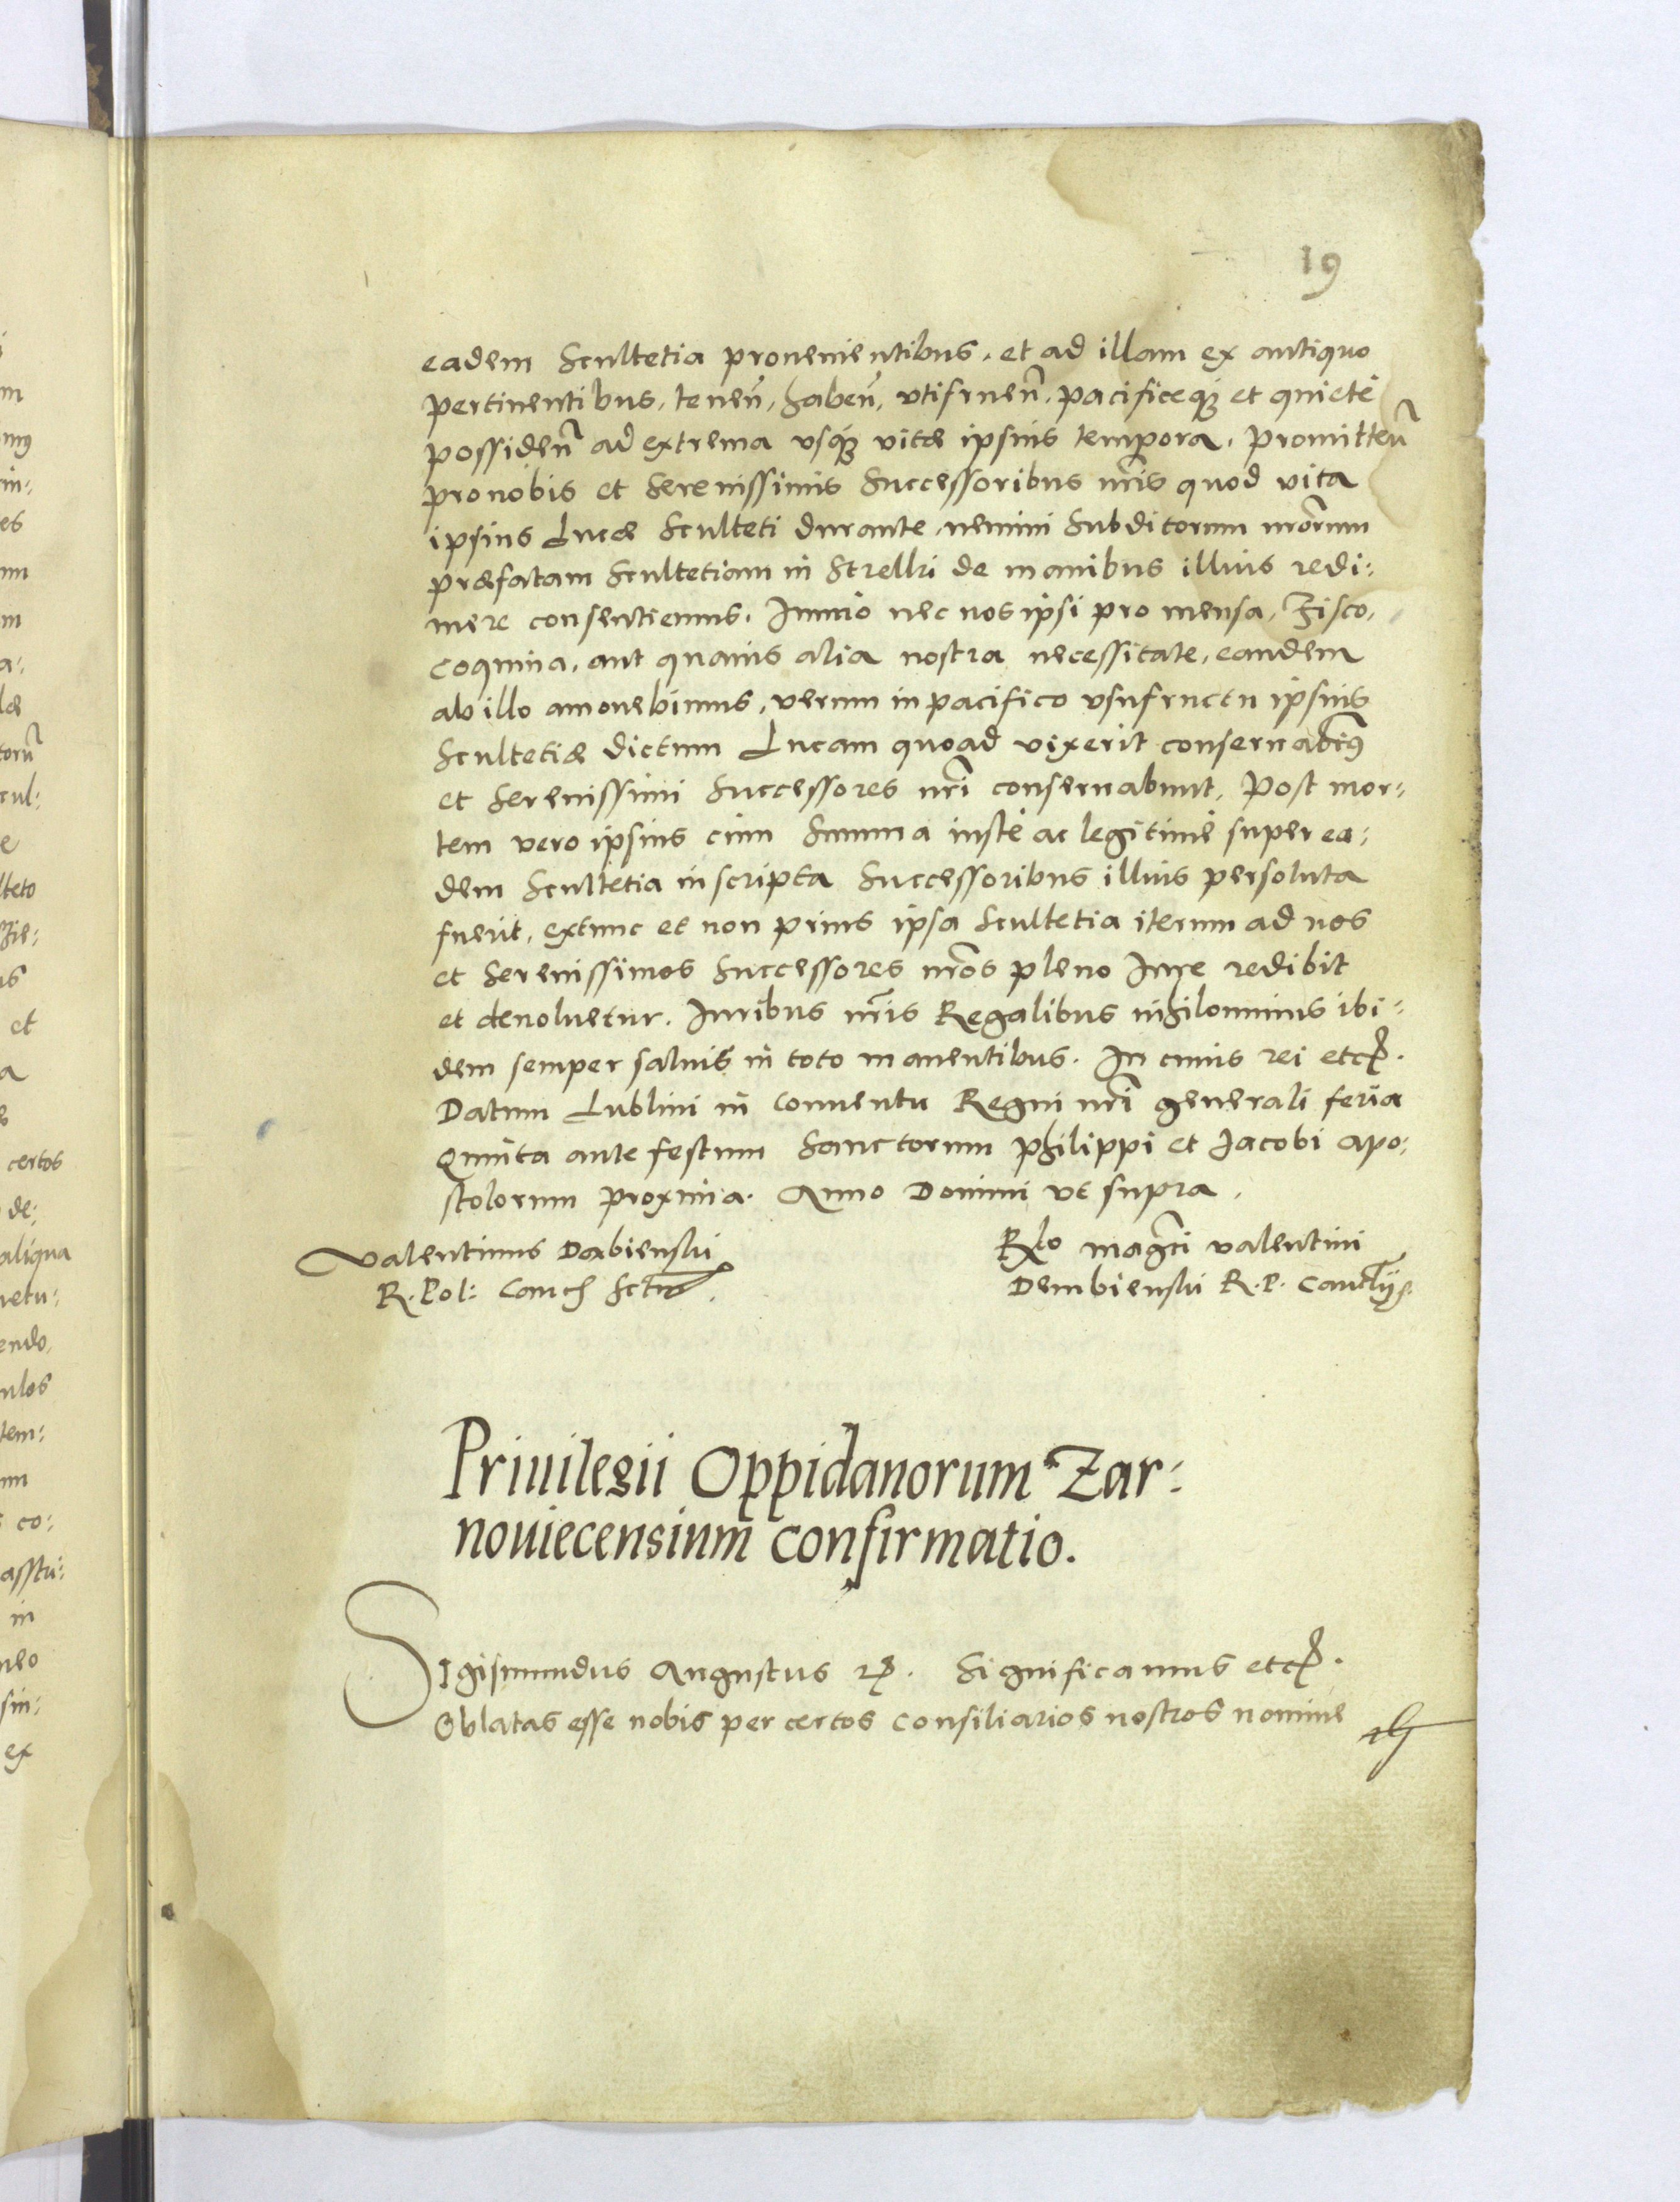 19
eadem Scultetia prouenientibus, et ad illam ex antiquo
pertinentibus, tenen̄, haben̄, vtifruen̄, pacificeq̄ et quietè
possiden̄ ad extrema vsq̄ vitæ ipsius tempora. Promitten̄
pro nobis et Serenissimis Successoribus nr̄is quod vita
ipsius Lucæ Sculteti durante, nemini Subditorum nr̄orum
præfatam Scultetiam in Strelki de manibus illius redi:
mere consentiemus. Immo nec nos ipsi pro mensa, Fisco,
coquina, aut quauis alia nostra necessitate, eandem
ab illo amouebimus, verum in pacifico vsufructu ipsius
Scultetiæ dictum Lucam quoad vixerit conseruabim9
et Serenissimi Successores nr̄i conseruabunt. Post mor:
tem vero ipsius cum Summa iustè ac legitimè super ea:
dem Scultetia inscripta Successoribus illius persoluta
fuerit, extunc et non prius ipsa Scultetia iterum ad nos
et Serenissimos Successores nr̄os pleno Iure redibit
et deuoluetur. Iuribus nr̄is Regalibus nihilominus ibi:
dem semper saluis in toto manentibus. In cuius rei etc̄.
Datum Lublini in Conuentu Regni nr̄i generali feria
Quinta ante festum Sanctorum Philippi et Jacobi Apo:
stolorum proxima. Anno Domini vt supra.
Valentinus Dąbienski
R. Pol: Canc̄ sst.
Rlo maḡci Valentini
Dembienski R. P. Can̄cllrij
Priuilegii Oppidanorum Zar:
nouiecensium confirmatio.
Sigismundus Augustus etc̄. Significamus etc̄.
Oblatas esse nobis per certos Consiliarios nostros nomine